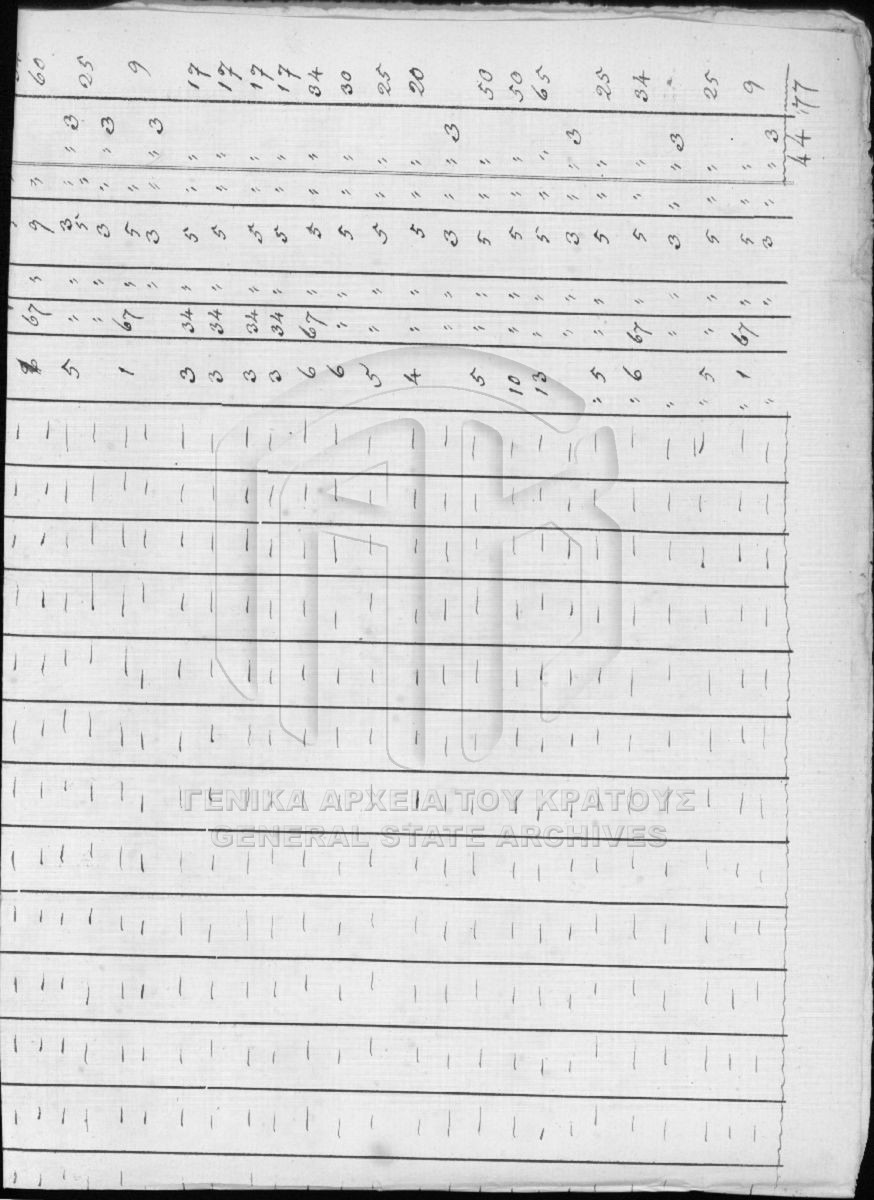 67 " 9 " 60
5 " " 3 " " 3
5 " 25
" " 3 " " 3
1 67 " 5 " 9
" 3 " " 3
3 34 " 5 " " 17
3 34 " 5 " " 17
3 34 " 5 " " 17
3 34 " 5 " " 17
6 67 " 5 " " 34
6 " " 5 " " 30
5 " " 5 " " 25
4 " " 5 " " 20
" " 3 " " 3
5 " " 5 " " 50
10 " " 5 " " 50
13 " " 5 " " 65
" " 3 " " 3
" 5 " " 5 " " 25
" 6 67 " 5 " " 34
" " " 3 " " 3
" 5 " " 5 " " 25
" 1 67 " 5 " " 9
" " 3 " " 3
44 " 77
ΓΕΝΙΚΑ ΑΡΧΕΙΑ ΤΟΥ ΚΡΑΤΟΥΣ
GENERAL STATE ARCHIVES